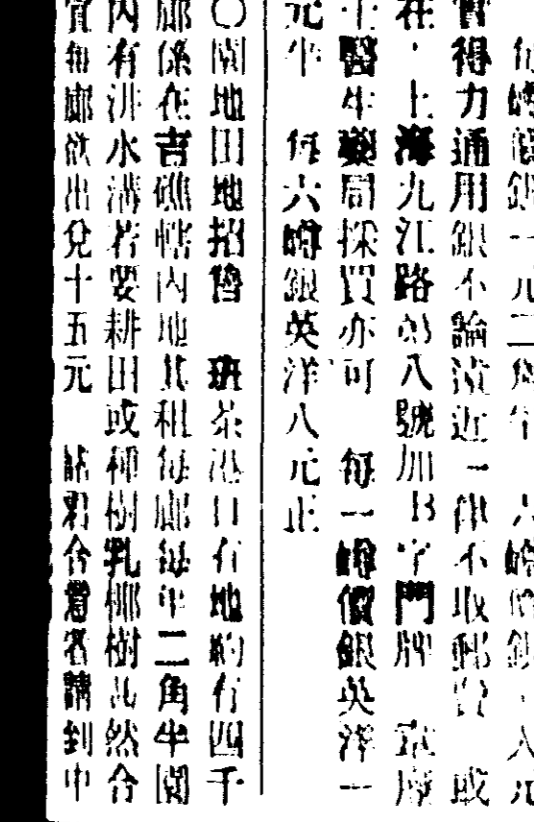 每嶟銀一元二角半 六嶟 銀 八元
實得力通用銀不論遠近一律不取郵費 或
在 上海九江路第八號加B字門牌 藥房
士醫生藥局採買亦可 每一嶟價銀英洋一
元半 每六嶟銀英洋八元正
〇園地田地招 班茶港口有地約有四千
廊係在吉礁轄內地其租每廊每年二角半園
內有汫水溝若要耕田或種樹乳椰樹 然合
實每廊欲出兌十五元 諸君合意者請到中